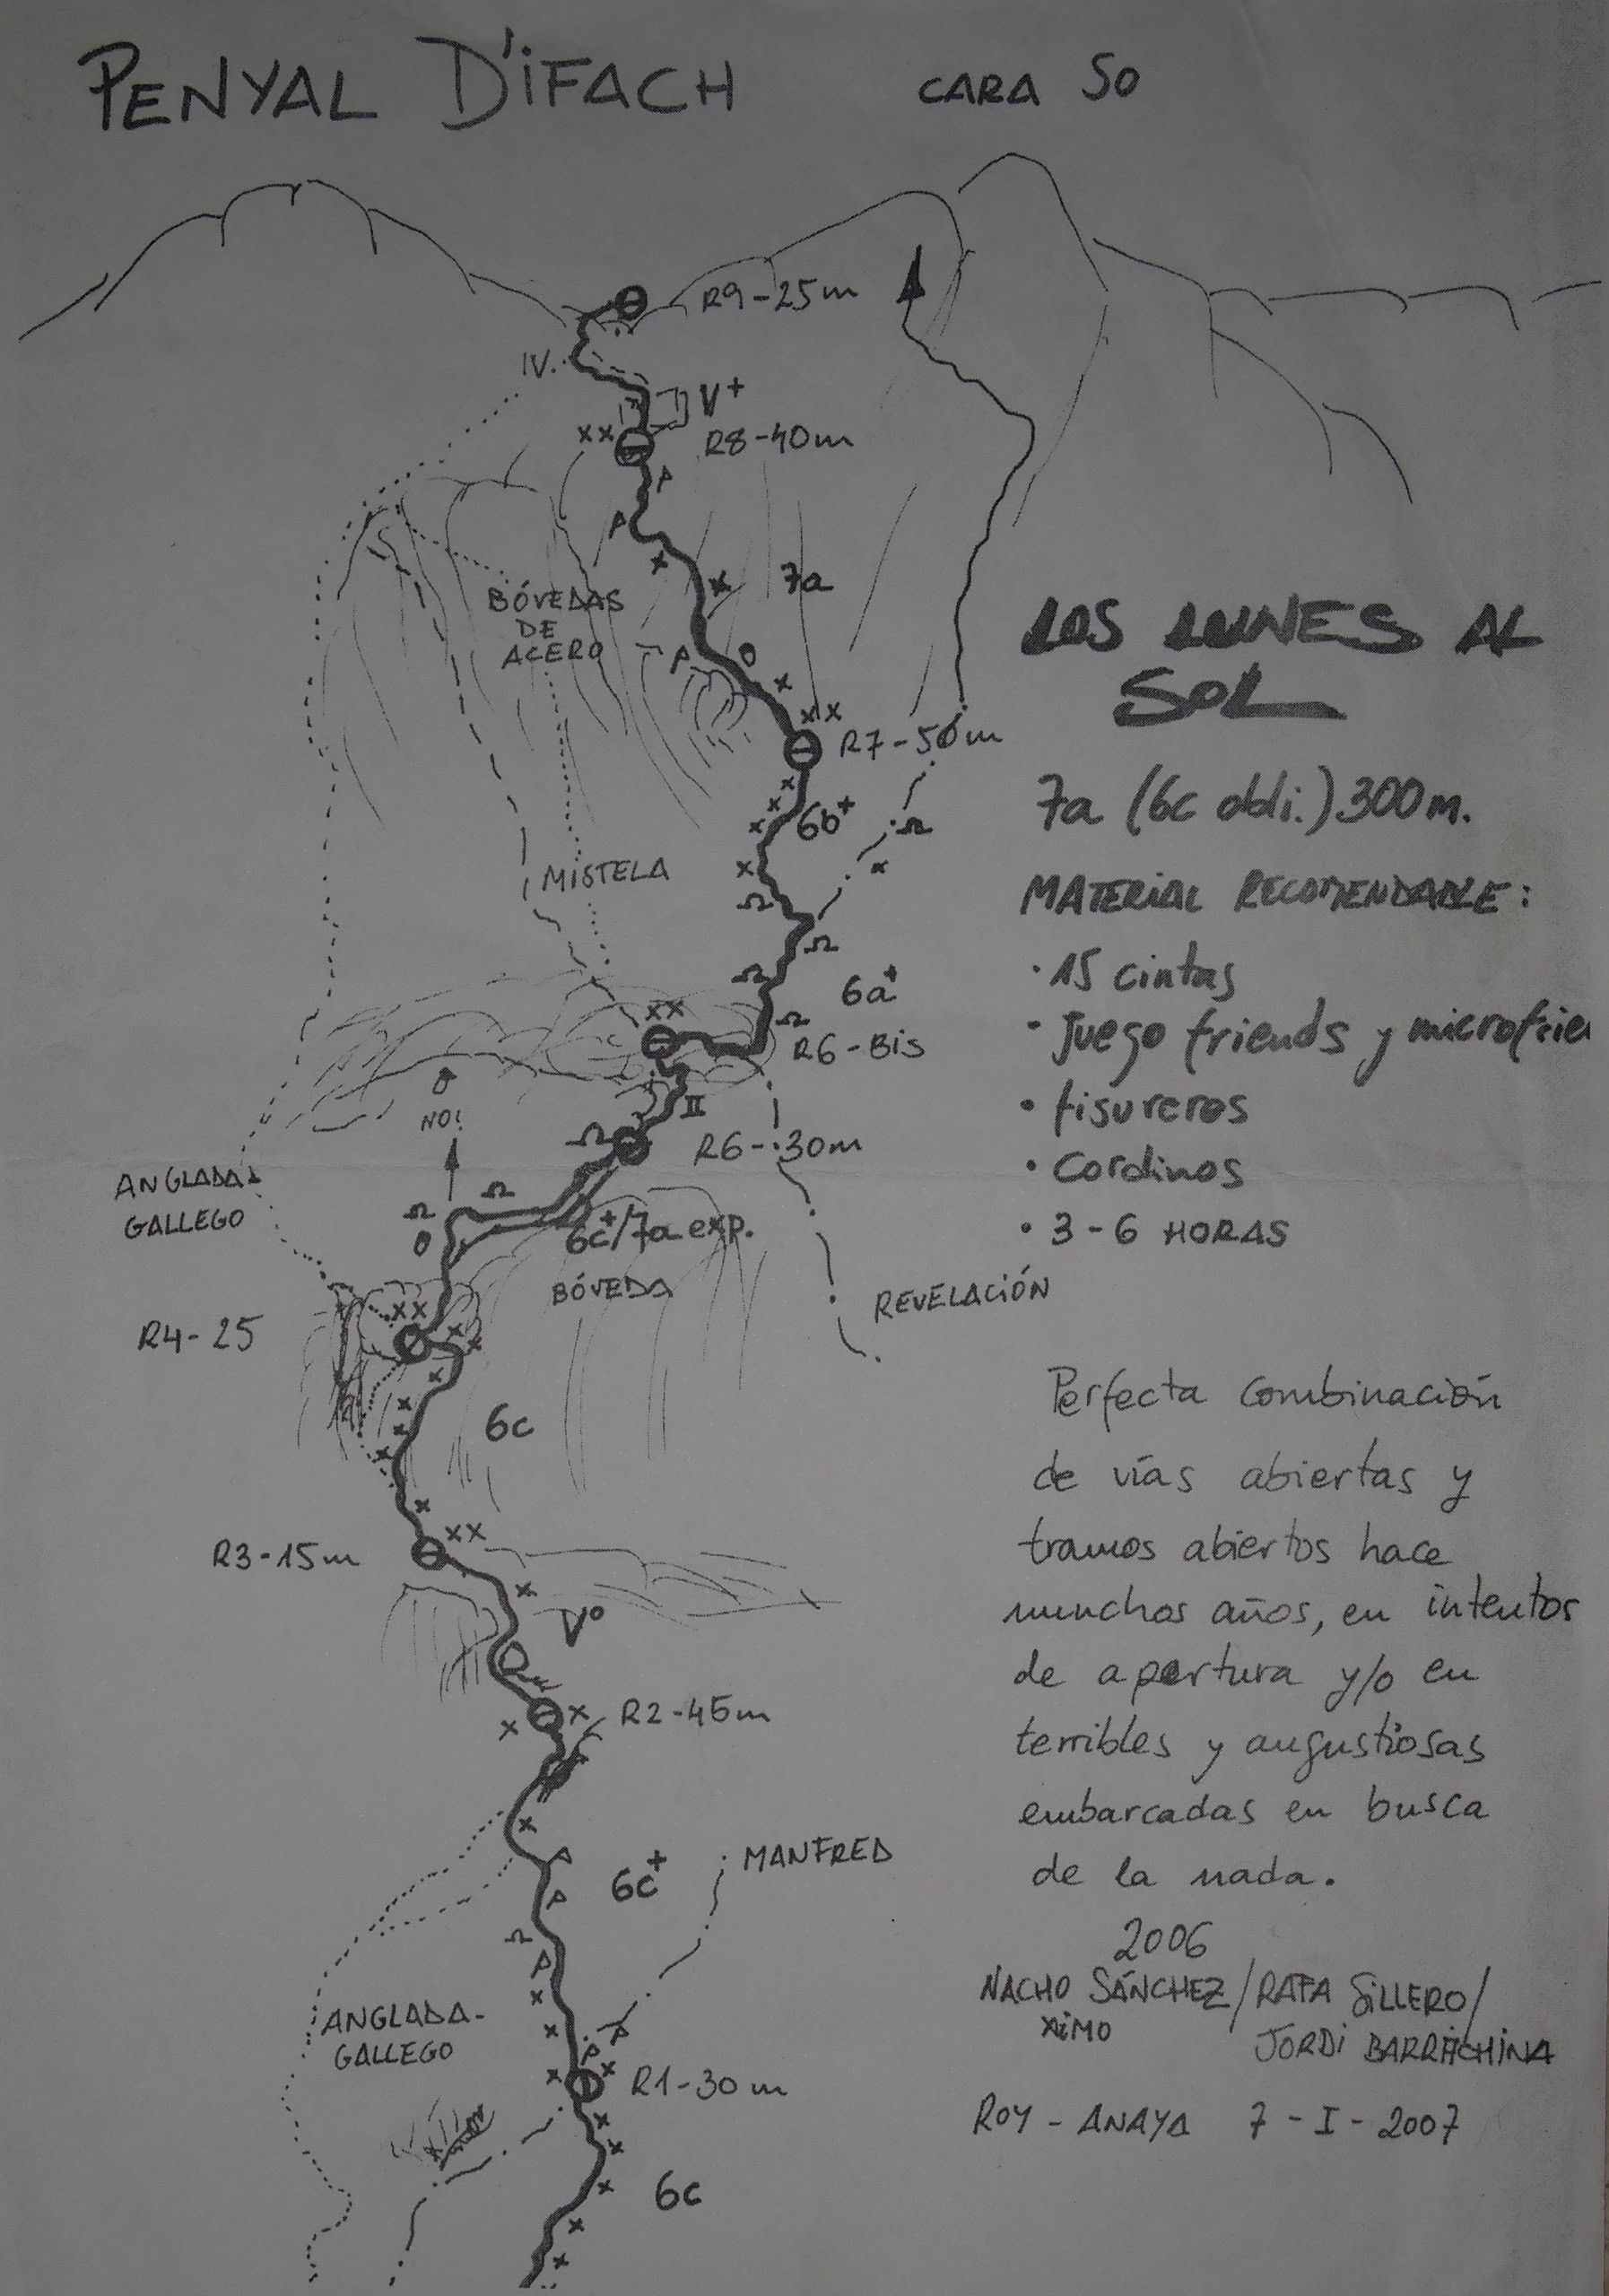 PENYAL D'IFACH
CARA SO
R9-25m
IV.
V+
XX
R8-40m
7a
BÓVEDAS
DE
ACERO
LOS LUNES AL
SOL
R7-50m
7a (6c obli.) 300m.
6b+
MISTELA
MATERIAL RECOMENDABLE:
· 15 cintas
6a+
XX
R6-Bis
· Juego friends y microfrie
NO!
II
• fisureros
R6-30m
• Cordinos
ANGLADA-
GALLEGO
6c+/7a exp.
• 3-6 HORAS
BÓVEDA
REVELACIÓN
XX
R4-25
6c
Perfecta combinación
de vías abiertas y
XX
R3-15m
tramos abiertos hace
munchos años, en intentos
Vº
de apertura y/o en
R2-45m
terribles y angustiosas
embarcadas en busca
de la nada.
MANFRED
6c+
2006
NACHO SÁNCHEZ/RAFA SILLERO/
XIMO
JORDI BARRACHINA
ANGLADA-
GALLEGO
R1-30m
ROY-ANAYA 7-I-2007
6c